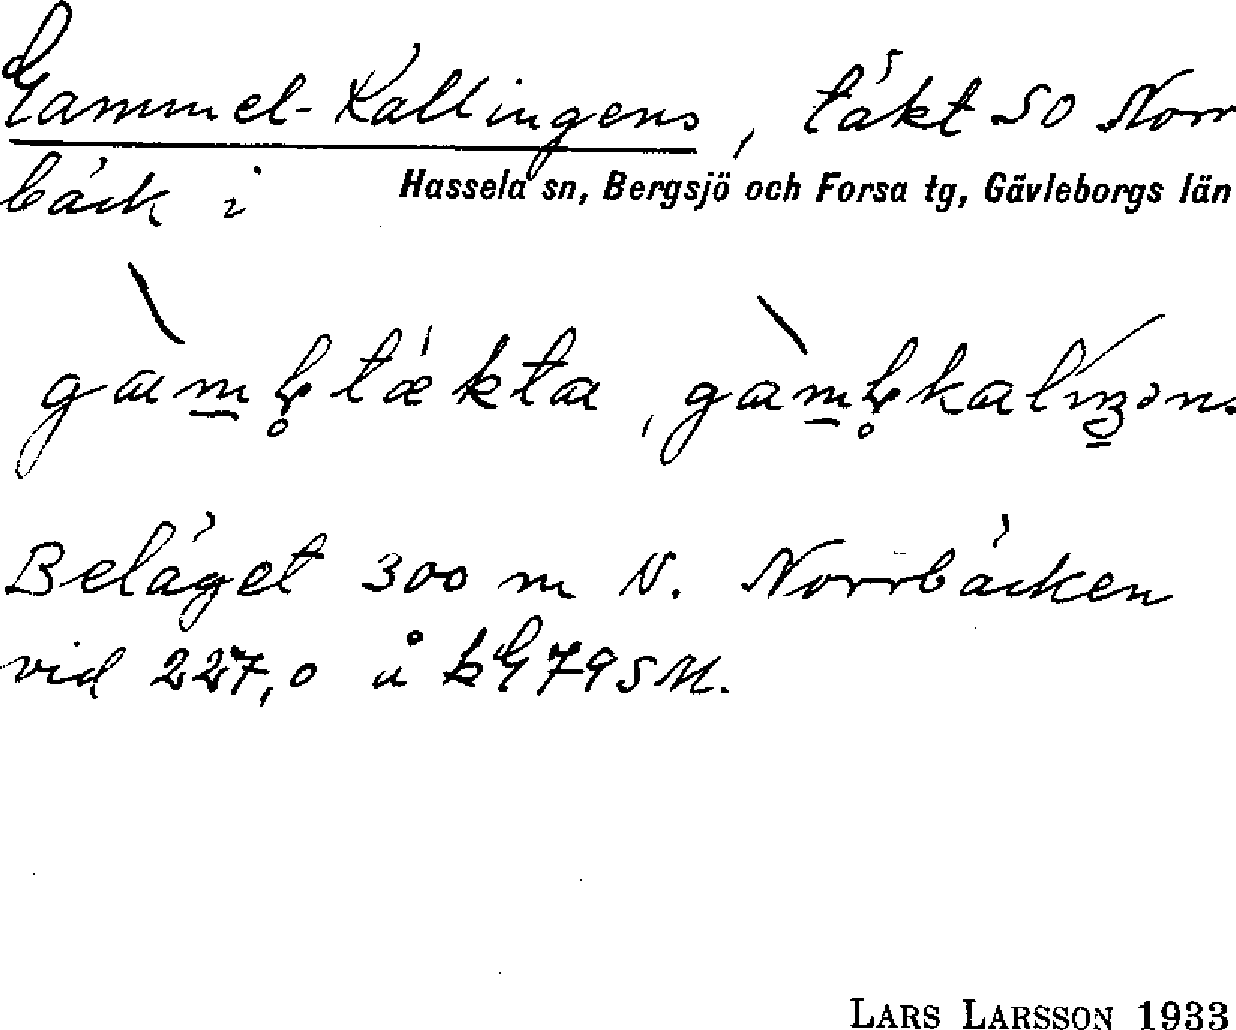 Gammel-Källingens, täkt SO Norr
bäck i Hassela sn, Bergsjö och Forsa tg, Gävleborgs län
Beläget 300 m N. Norrbäcken
vid 227,0 å kG 795 M.
LARS LARSSON 1933